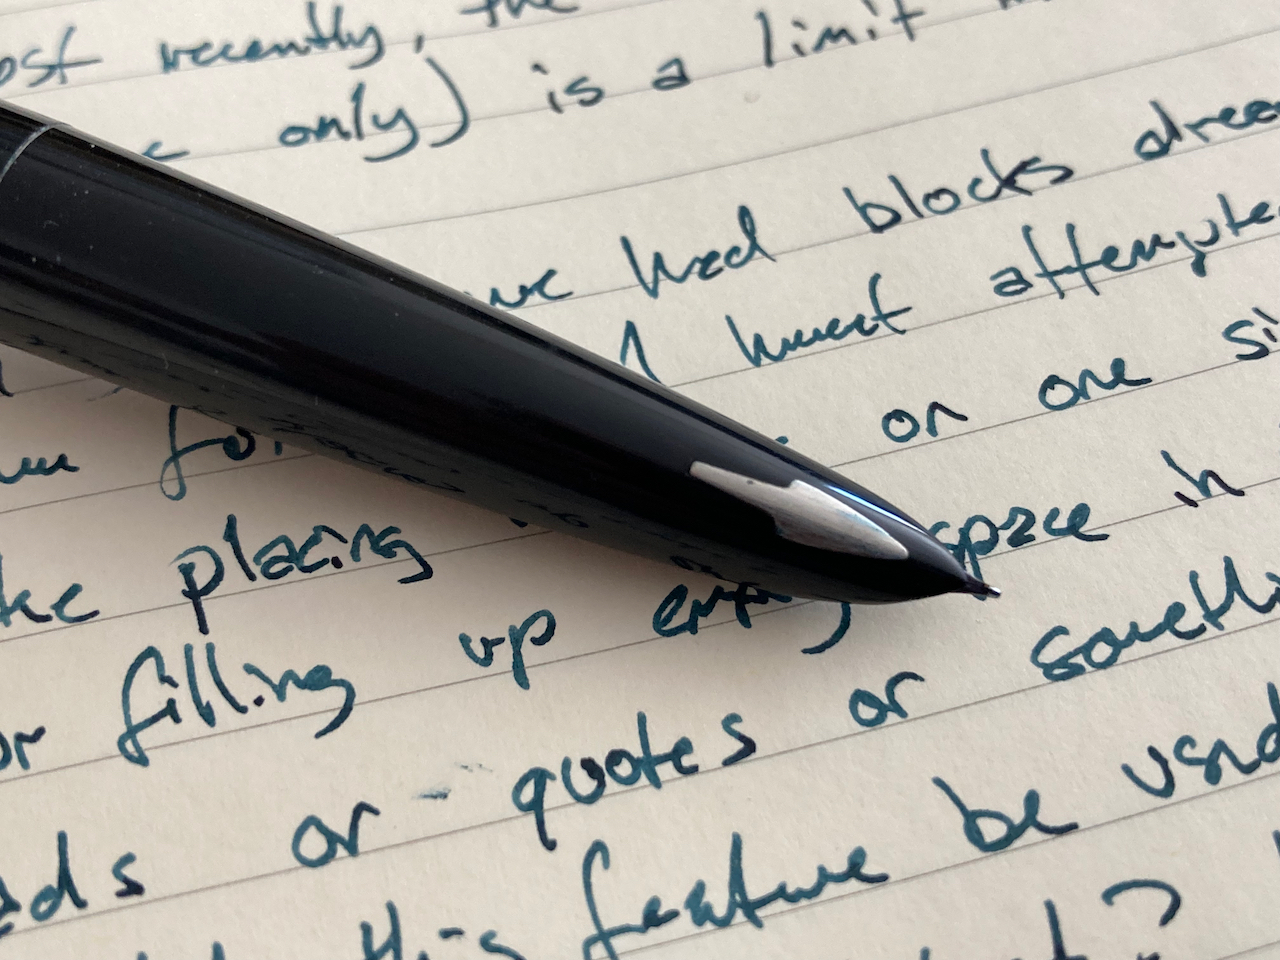 ost recently, the
only) is a limit
we had blocks alrea
I haven't attempte
for on one si
ke placing space in
or filling up empty
ads or quotes or somethi
this feature be used
t?